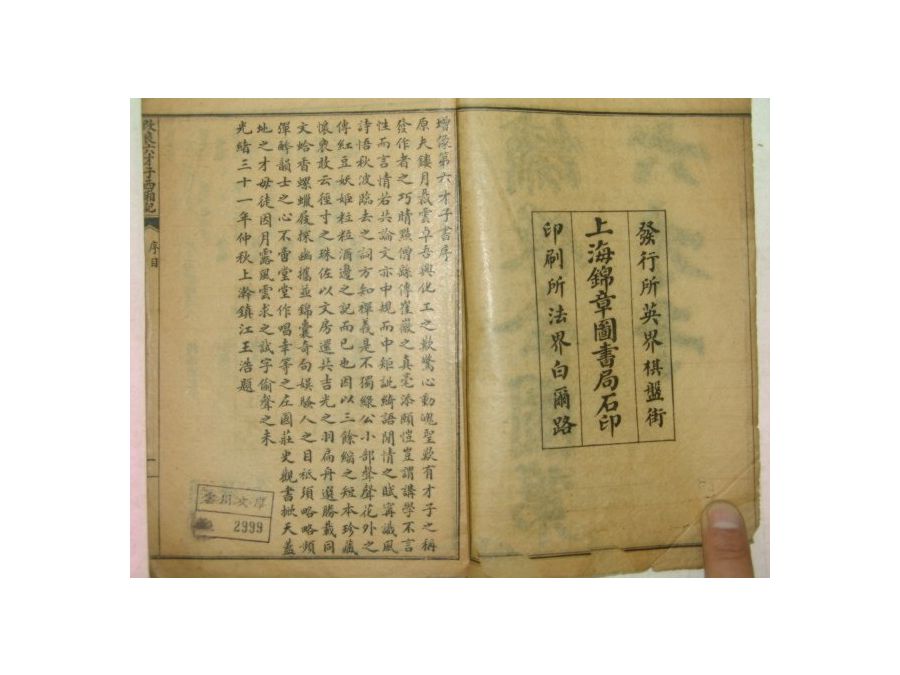 發行所英界棋盤街
上海錦章圖書局石印
印刷所法界白爾路
增像第六才子書序
原夫鏤月裁雲卓吾興化工之歎驚心動魄聖歎有才子之稱
發作者之巧睛點僧繇傳崔徽之真毫添頤愷豈謂講學不言
性而言情若共論文亦中規而中矩訿綺語閒情之賦寗識風
詩悟秋波臨去之詞方知禪義是不獨綠公小部聲聲花外之
傳紅豆妖姬粒粒酒邊之記而已也因以三餘縮之短本珍藏
懷裏放云徑寸之珠佐以文房還共吉光之羽扁舟選勝載同
文蛤香螺蠟屐探幽攜並錦囊奇句娱騷人之目祗須略略頻
彈酔韻士之心不啻堂堂作唱幸等之左國莊史觀書掀天蓋
地之才毋徒因月露風雲求之試字偷聲之末
光緒三十一年仲秋上澣鎮江王浩題
改良六才子西廂記
序目
一
文庫
2999